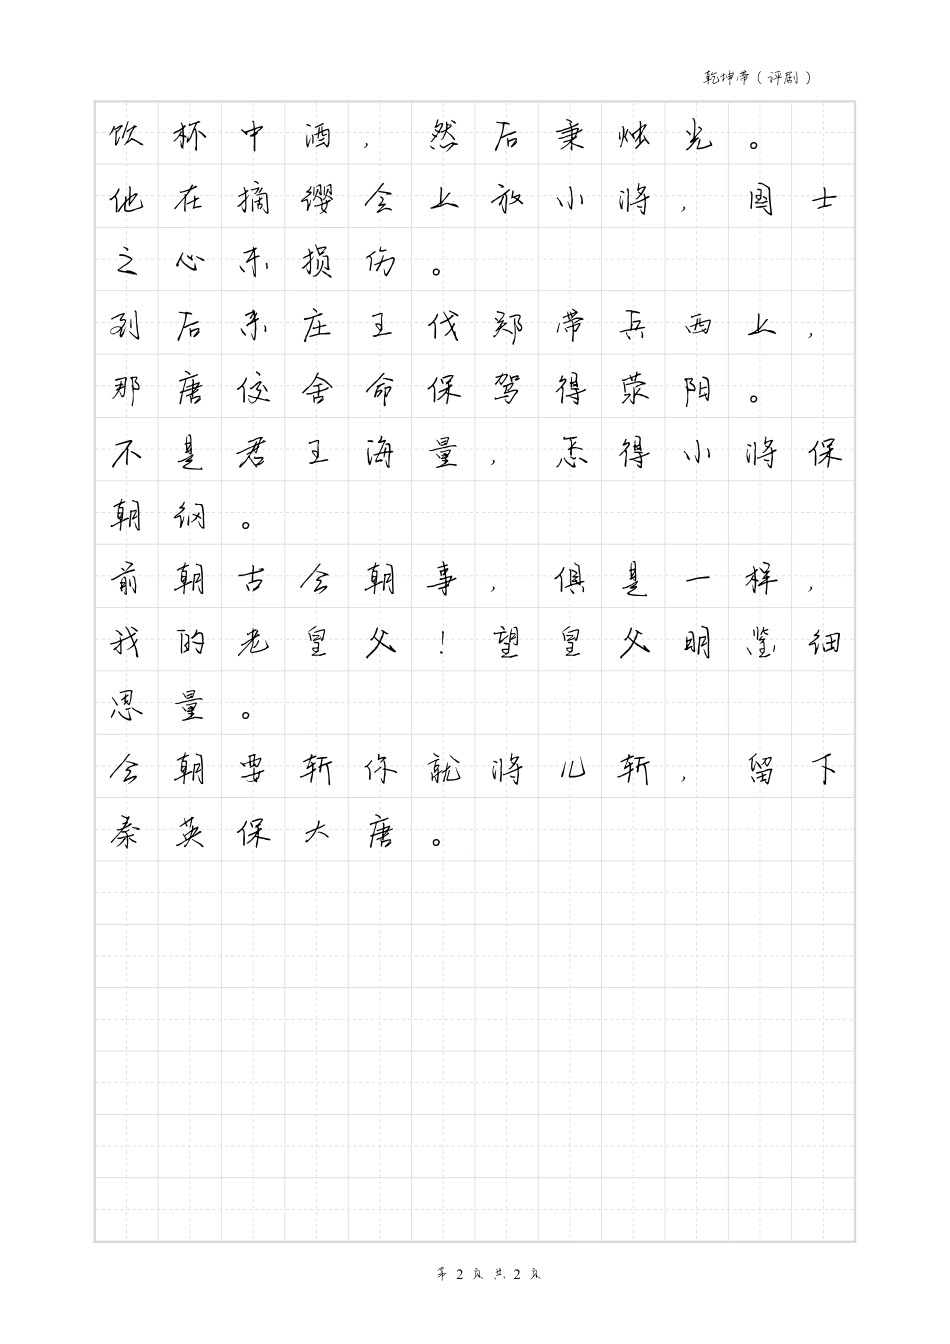 乾坤带（评剧）
饮杯中酒，然后秉烛光。
他在摘缨会上放小将，国士
之心未损伤。
到后来庄王伐郑带兵西上，
那唐佼舍命保驾得荥阳。
不是君王海量，怎得小将保
朝纲。
前朝古今朝事，俱是一样，
我的老皇父！望皇父明鉴细
思量。
今朝要斩你就将儿斩，留下
秦英保大唐。
第 2 页 共 2 页